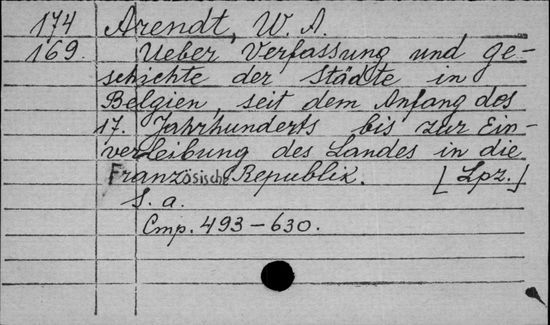 174 Arendt, W. A.
169. Ueber Verfassung und Ge-
schichte der Städte in
Belgien, seit dem Anfang des
17. Jahrhunderts bis zur Ein-
verleibung des Landes in die
Französische Republik. [Lpz.]
S. a.
Стр. 493-630.